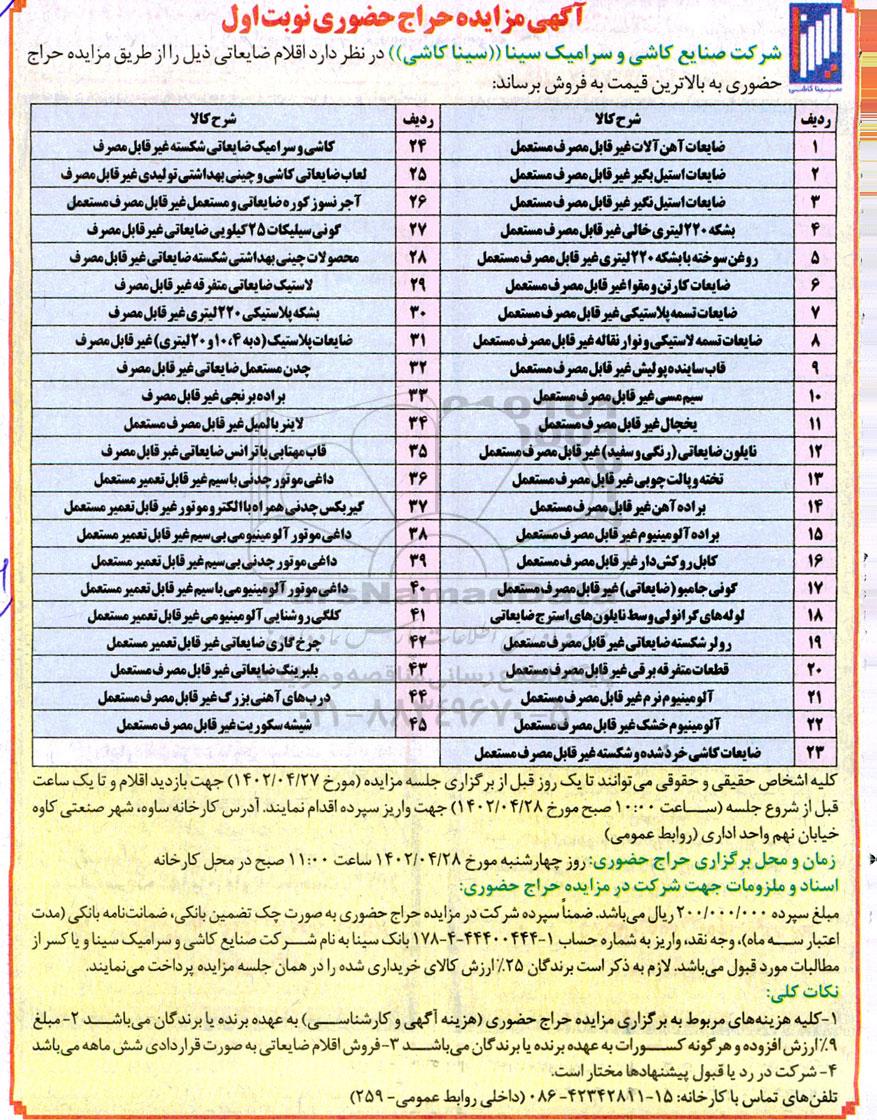 آگهی مزایده حراج حضوری نوبت اول
سینا کاشی
شرکت صنایع کاشی و سرامیک سینا ((سینا کاشی)) در نظر دارد اقلام ضایعاتی ذیل را از طریق مزایده حراج
حضوری به بالاترین قیمت به فروش برساند:
ردیف شرح کالا ردیف شرح کالا
۱ ضایعات آهن آلات غیر قابل مصرف مستعمل ۲۴ کاشی و سرامیک ضایعاتی شکسته غیر قابل مصرف
۲ ضایعات استیل بگیر غیر قابل مصرف مستعمل ۲۵ لعاب ضایعاتی کاشی و چینی بهداشتی تولیدی غیر قابل مصرف
۳ ضایعات استیل نگیر غیر قابل مصرف مستعمل ۲۶ آجر نسوز کوره ضایعاتی و مستعمل غیر قابل مصرف مستعمل
۴ بشکه ۲۲۰ لیتری خالی غیر قابل مصرف مستعمل ۲۷ گونی سیلیکات ۲۵ کیلویی ضایعاتی غیر قابل مصرف
۵ روغن سوخته با بشکه ۲۲۰ لیتری غیر قابل مصرف مستعمل ۲۸ محصولات چینی بهداشتی شکسته ضایعاتی غیر قابل مصرف
۶ ضایعات کارتن و مقوا غیر قابل مصرف مستعمل ۲۹ لاستیک ضایعاتی متفرقه غیر قابل مصرف
۷ ضایعات تسمه پلاستیکی غیر قابل مصرف مستعمل ۳۰ بشکه پلاستیکی ۲۲۰ لیتری غیر قابل مصرف
۸ ضایعات تسمه لاستیکی و نوار نقاله غیر قابل مصرف مستعمل ۳۱ ضایعات پلاستیک (دبه ۴، ۱۰ و ۲۰ لیتری) غیر قابل مصرف
۹ قاب ساینده پولیش غیر قابل مصرف مستعمل ۳۲ چدن مستعمل ضایعاتی غیر قابل مصرف
۱۰ سیم مسی غیر قابل مصرف مستعمل ۳۳ براده برنجی غیر قابل مصرف
۱۱ یخچال غیر قابل مصرف مستعمل ۳۴ لاینر بالمیل غیر قابل مصرف مستعمل
۱۲ نایلون ضایعاتی (رنگی و سفید) غیر قابل مصرف مستعمل ۳۵ قاب مهتابی با ترانس ضایعاتی غیر قابل مصرف
۱۳ تخته و پالت چوبی غیر قابل مصرف مستعمل ۳۶ داغی موتور چدنی با سیم غیر قابل تعمیر مستعمل
۱۴ براده آهن غیر قابل مصرف مستعمل ۳۷ گیربکس چدنی همراه با الکتروموتور غیر قابل تعمیر مستعمل
۱۵ براده آلومینیوم غیر قابل مصرف مستعمل ۳۸ داغی موتور آلومینیومی بی سیم غیر قابل تعمیر مستعمل
۱۶ کابل روکش دار غیر قابل مصرف مستعمل ۳۹ داغی موتور چدنی بی سیم غیر قابل تعمیر مستعمل
۱۷ گونی جامبو (ضایعاتی) غیر قابل مصرف مستعمل ۴۰ داغی موتور آلومینیومی با سیم غیر قابل تعمیر مستعمل
۱۸ لوله های گرانولی وسط نایلون های استرچ ضایعاتی ۴۱ کلگی روشنایی آلومینیومی غیر قابل تعمیر مستعمل
۱۹ رولر شکسته ضایعاتی غیر قابل مصرف مستعمل ۴۲ چرخ گاری ضایعاتی غیر قابل تعمیر مستعمل
۲۰ قطعات متفرقه برقی غیر قابل مصرف مستعمل ۴۳ بلبرینگ ضایعاتی غیر قابل مصرف مستعمل
۲۱ آلومینیوم نرم غیر قابل مصرف مستعمل ۴۴ درب های آهنی بزرگ غیر قابل مصرف مستعمل
۲۲ آلومینیوم خشک غیر قابل مصرف مستعمل ۴۵ شیشه سکوریت غیر قابل مصرف مستعمل
۲۳ ضایعات کاشی خرد شده و شکسته غیر قابل مصرف مستعمل
کلیه اشخاص حقیقی و حقوقی می توانند تا یک روز قبل از برگزاری جلسه مزایده (مورخ ۱۴۰۲/۰۴/۲۷) جهت بازدید اقلام و تا یک ساعت
قبل از شروع جلسه (ساعت ۱۰:۰۰ صبح مورخ ۱۴۰۲/۰۴/۲۸) جهت واریز سپرده اقدام نمایند. آدرس کارخانه ساوه، شهر صنعتی کاوه
خیابان نهم واحد اداری (روابط عمومی)
زمان و محل برگزاری حراج حضوری: روز چهارشنبه مورخ ۱۴۰۲/۰۴/۲۸ ساعت ۱۱:۰۰ صبح در محل کارخانه
اسناد و ملزومات جهت شرکت در مزایده حراج حضوری:
مبلغ سپرده ۲۰۰/۰۰۰/۰۰۰ ریال می باشد. ضمناً سپرده شرکت در مزایده حراج حضوری به صورت چک تضمین بانکی، ضمانت نامه بانکی (مدت
اعتبار سه ماه)، وجه نقد، واریز به شماره حساب ۱-۴۴۴۰۰۴۴۴-۴-۱۷۸ بانک سینا به نام شرکت صنایع کاشی و سرامیک سینا و یا کسر از
مطالبات مورد قبول می باشد. لازم به ذکر است برندگان ۲۵٪ ارزش کالای خریداری شده را در همان جلسه مزایده پرداخت می نمایند.
نکات کلی:
۱-کلیه هزینه های مربوط به برگزاری مزایده حراج حضوری (هزینه آگهی و کارشناسی) به عهده برنده یا برندگان می باشد ۲-مبلغ
۹٪ ارزش افزوده و هر گونه کسورات به عهده برنده یا برندگان می باشد ۳-فروش اقلام ضایعاتی به صورت قراردادی شش ماهه می باشد
۴-شرکت در رد یا قبول پیشنهادها مختار است.
تلفن های تماس با کارخانه: ۱۵-۴۲۳۴۲۸۱۱-۰۸۶ (داخلی روابط عمومی- ۲۵۹)
ParsNamadData
۰۲۱-۸۸۳۴۹۶۷۰-۵